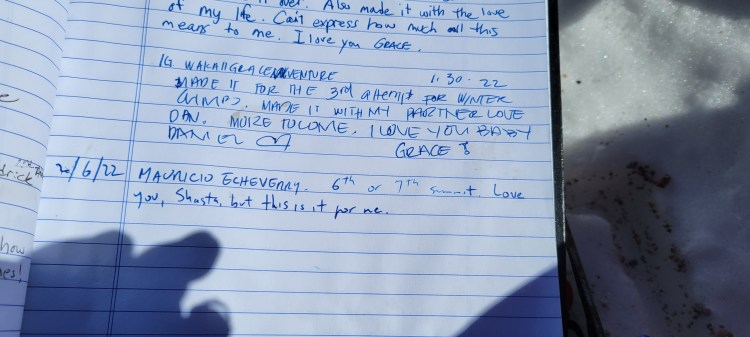 over. Also made it with the love
of my life. Can't express how much all this
means to me. I love you GRACE.
IG
1.30.22
MADE IT FOR THE 3rd attempt FOR WINTER
MADE IT WITH MY PARTNER LOVE
DAN. MORE TO COME. I LOVE YOU BABY
DANIEL
GRACE
drick
2/6/22 MAURICIO ECHEVERRY. 6th or 7th summit. Love
you, Shasta, but this is it for me.
how